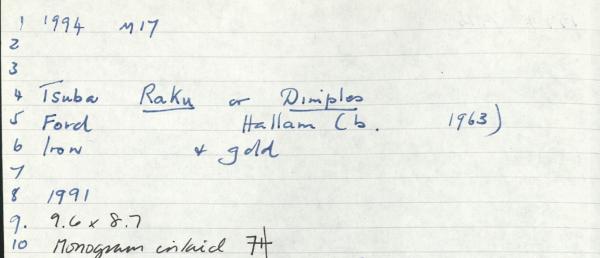 1 1994 M17
2
3
4 Tsuba Raku or Dimples
5 Ford Hallam (b. 1963)
6 Iron + gold
7
8 1991
9. 9.6 x 8.7
10 Monogram inlaid